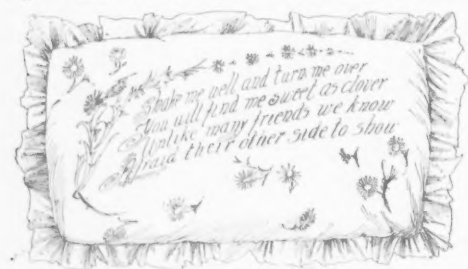 Shake me well and turn me over
You will find me sweet as clover
Unlike many friends we know
Afraid their other side to show